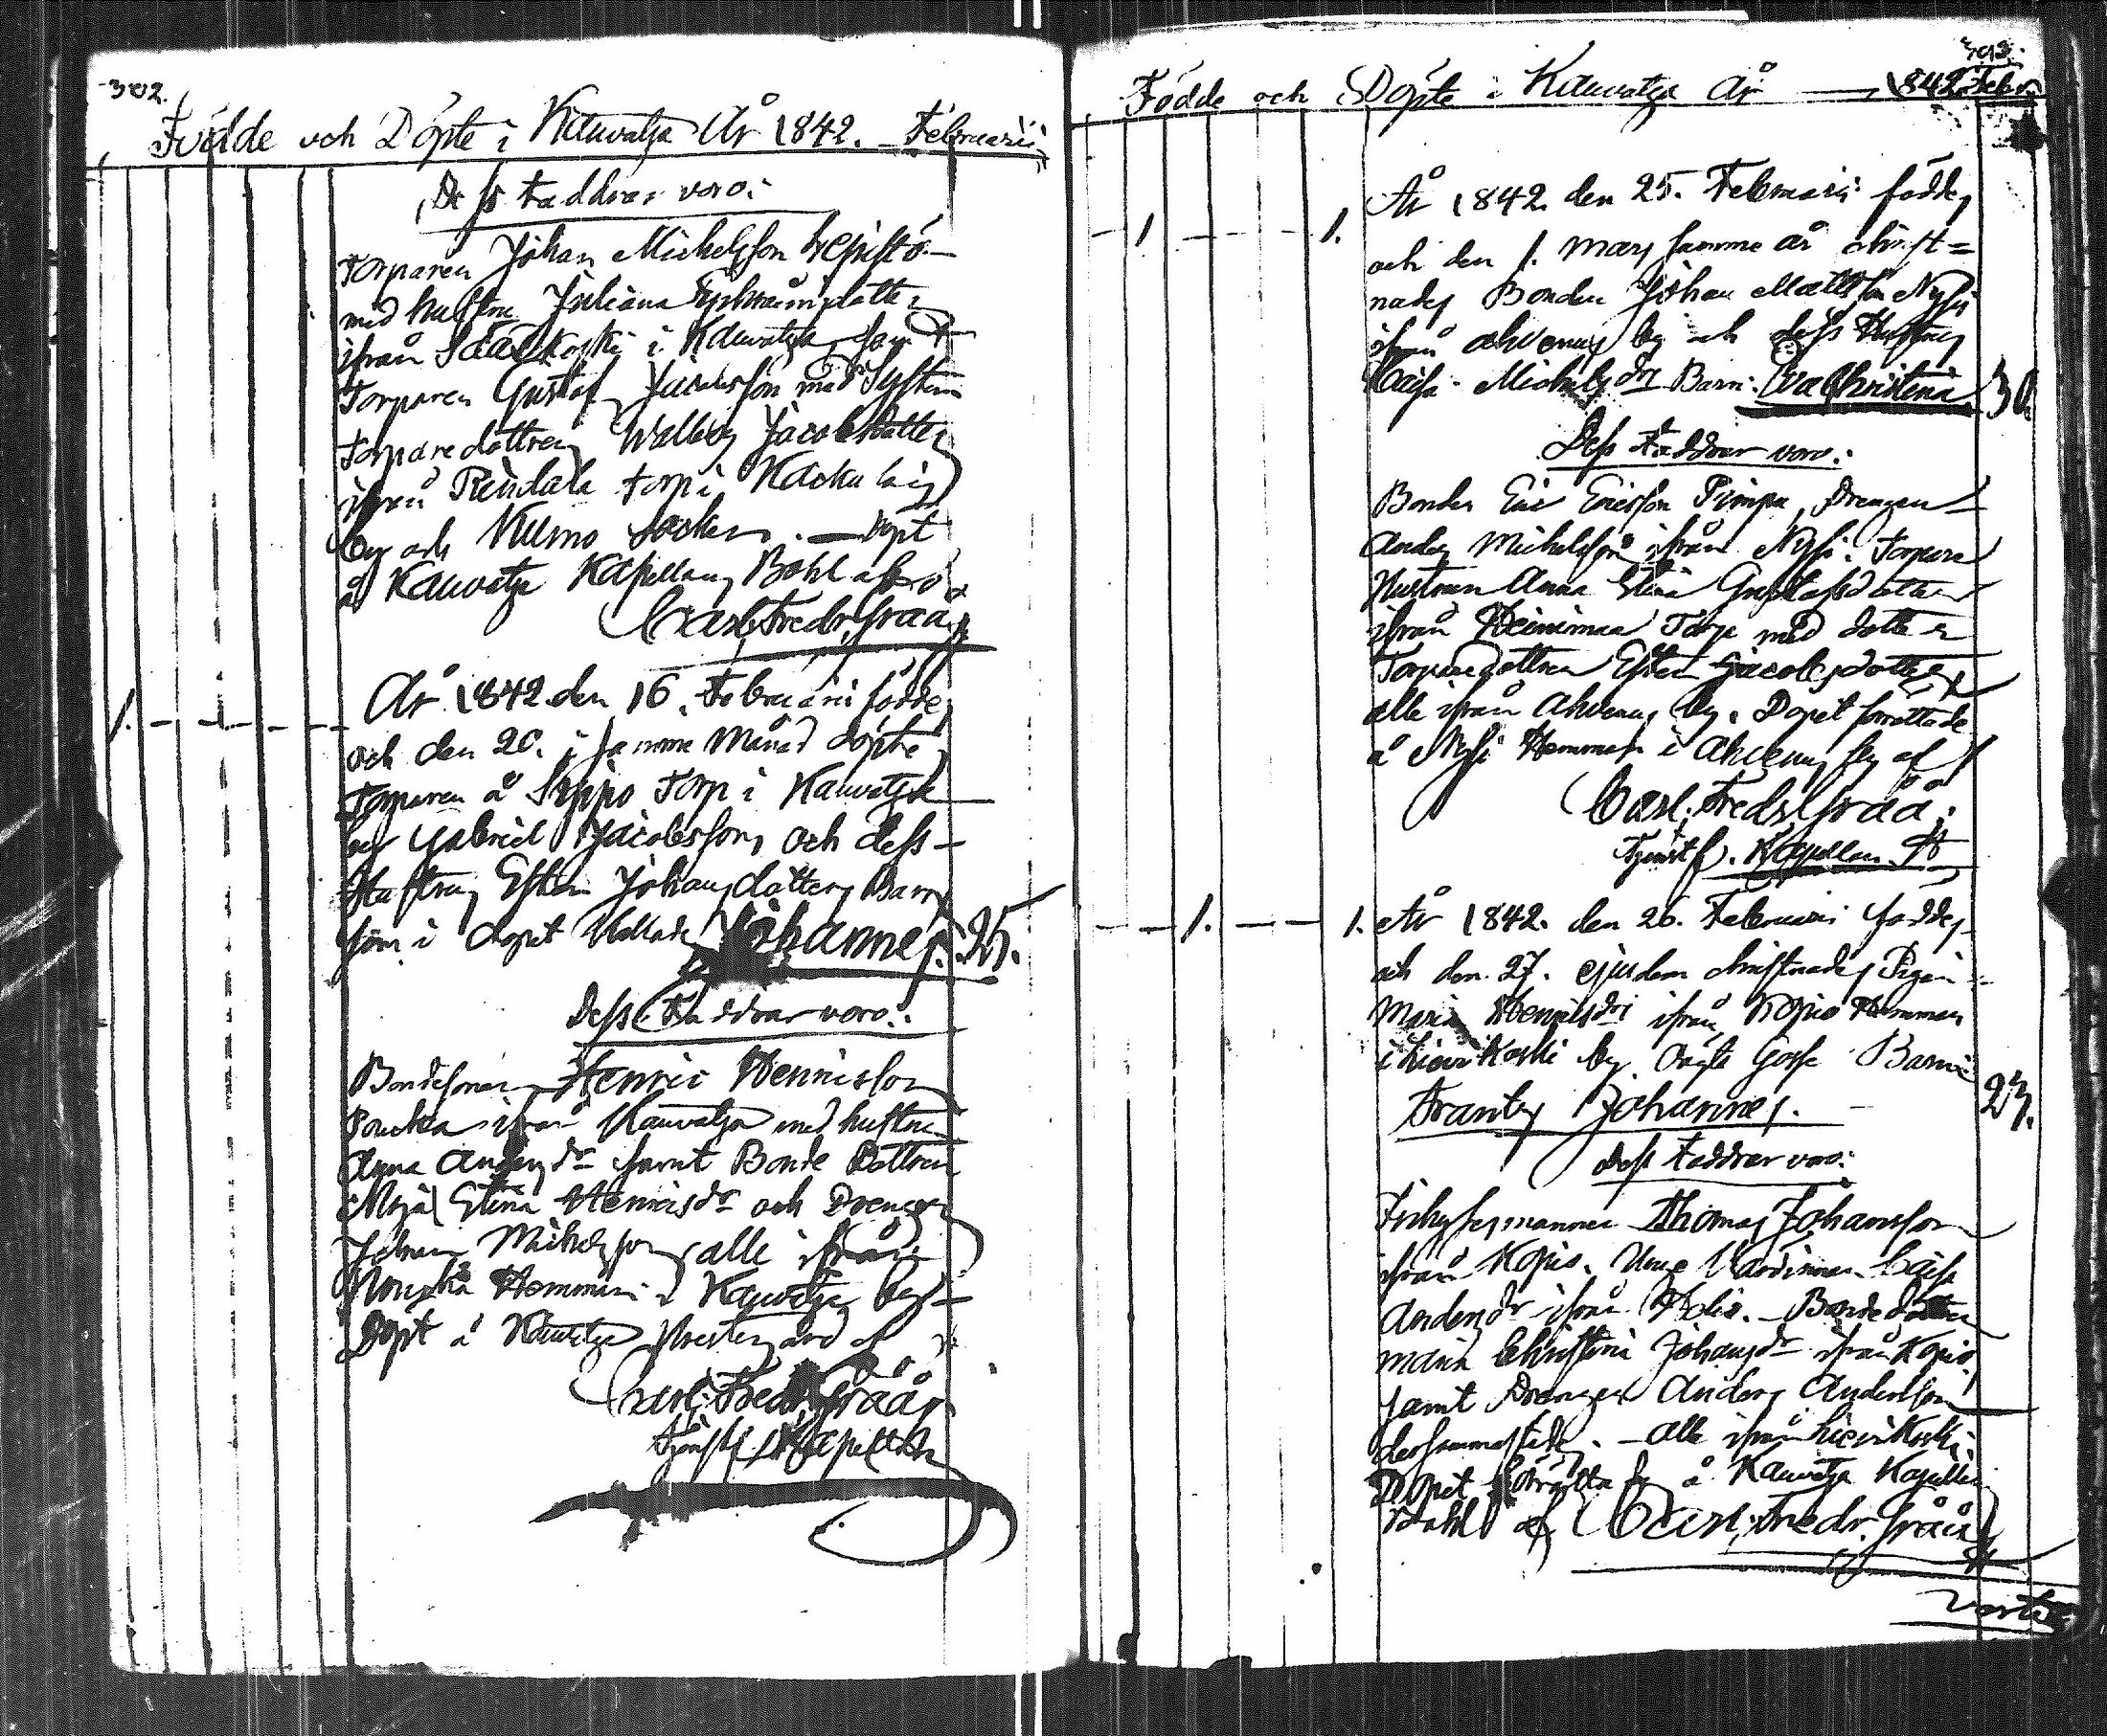 302.
Födde och Döpte i Kauvatsa År 1842. Februarii
Dess Faddrar voro:
Torparen Johan Michelsson Lepistö
med hustru Juliana Ephraimsdotter
ifrån Sääxkoski i Kauvatsa samt
Torparen Gustaf Jacobsson med Systern
Torparedottren Walborg Jacobsdotter
ifrån Rindala torp i
by och Kumo Socken. Döpt
å Kauvatsa Kapellans Bohl af
Carl Fredr. Gråå
År 1842 den 16. Februarii födde
1.
och den 20. i samma Månad döpte
Torparen å Seppo Torp i Kauvatsa
by Gabriel Jacobsson och dess
Hustrus Esther Johansdotters Barn
som i dopet kallades Johannes. 25.
Dess Faddrar voro:
Bondesonen Henric Henricsson
ifrån Kauvatsa med hustru
Anna Andersdr samt Bonde Dottren
Maja Stina Henricsdr och Drengen
Johan Michelsson alle ifrån
Hemman i Kauvatsa by
Döpt å Kauvatsa Prestegård af
Carl Fredr. Gråå
Tjenstf. Kapellan
303.
Födde och Döpte i Kauvatsa År 1842 Febr.
År 1842 den 25. Februarii föddes
1. 1.
och den 1. Mars samma år christ=
nades Bonden Johan Mattsson Nysi
ifrån Ahvenus by och dess Hustrus
Caisa Michelsdr Barn: Eva Christina 30.
Dess Faddrar voro:
Bonden Eric Ericsson Pimpa, Drengen
Anders Michelsson ifrån Nysi. Torpare
Hustrun Anna Stina Gustafsdotter
ifrån Heinimaa Torp med dotter
Torparedottren Esther Jacobsdotter
alle ifrån Ahvenus by. Dopet förrättade
å Nysi Hemman i Ahvenus by af
Carl Fredr. Gråå.
Tjenstf. Kapellan
1. 1. År 1842. den 26. Februarii föddes
och den 27. ejusdem christnades Pigan
Maria Henricsdr ifrån Kopio Hemman
i Lievikoski by Oägta Gosse Barn
Frants Johannes. 27.
Dess Faddrar voro:
Thomas Johansson
ifrån Kopio. Unga Värdinnan Caisa
Andersdr ifrån Bondedottren
Maria Christina Johansdr ifrån Kopio
samt Drengen Anders Andersson
dersammastädes. alle ifrån Lievikoski.
Dopet förrättades å Kauvatsa Kapellans
Bohl af Carl Fredr. Gråå
verte